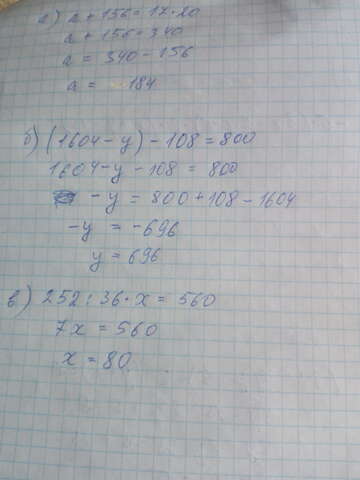 а) a + 156 = 17 · 20
a + 156 = 340
a = 340 - 156
a = 184
б) (1604 - y) - 108 = 800
1604 - y - 108 = 800
- y = 800 + 108 - 1604
- y = - 696
y = 696
в) 252 : 36 · x = 560
7x = 560
x = 80